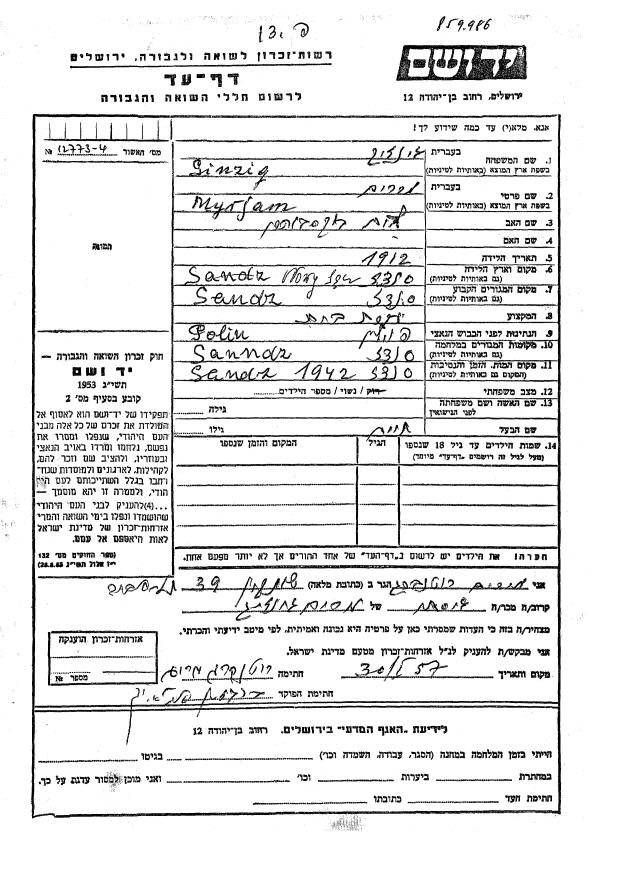 859.986
יד ושם
ירושלים, רחוב בן־יהודה 12
רשות־זכרון לשואה ולגבורה, ירושלים
דף־עד
לרשום חללי השואה והגבורה
אנא, מלא(י) עד כמה שידוע לך!
מס׳ האשור 12773-4 №
תמונה
1. שם המשפחה
בשפת ארץ המוצא (באותיות לטיניות)
בעברית
Ginzig
2. שם פרטי
בשפת ארץ המוצא (באותיות לטיניות)
בעברית מרים
Myrjam
3. שם האב
4. שם האם
5. תאריך הלידה 1912
6. מקום וארץ הלידה
(גם באותיות לטיניות)
Sandz צאנז
7. מקום המגורים הקבוע
(גם באותיות לטיניות)
Sandz צאנז
8. המקצוע
9. הנתינות לפני הכבוש הנאצי
Polin פולין
10. מקומות המגורים במלחמה
(גם באותיות לטיניות)
Sanndz צאנז
11. מקום המות, הזמן והנסיבות
(המקום גם באותיות לטיניות)
Sandz 1942 צאנז
12. מצב משפחתי רוק / נשוי / מספר הילדים
13. שם האשה ושם משפחתה
לפני הנישואין
גילה
שם הבעל חיים
גילו
14. שמות הילדים עד גיל 18 שנספו
(מעל לגיל זה רושמים ״דף־עד״ מיוחד)
הגיל
המקום והזמן שנספו
חוק זכרון השואה והגבורה —
יד ושם
תשי״ג 1953
קובע בסעיף מס׳ 2
תפקידו של יד־ושם הוא לאסוף אל
המולדת את זכרם של כל אלה מבני
העם היהודי, שנפלו ומסרו את
נפשם, נלחמו ומרדו באויב הנאצי
ובעוזריו, ולהציב שם וזכר להם,
לקהילות, לארגונים ולמוסדות שנח־
רבו בגלל השתייכותם לעם היה־
הודי, ולמטרה זו יהא מוסמך —
...(4) להעניק לבני העם היהודי
שהושמדו ונפלו בימי השואה והמרי
אזרחות־זכרון של מדינת ישראל
לאות היאספם אל עמם.
(ספר החוקים מס׳ 132
הערה! את הילדים יש לרשום ב״דף־העד״ של אחד ההורים אך לא יותר מפעם אחת.
אני מרים רוטנברג הגר ב (כתובת מלאה) 39
קרוב/ה מכר/ה של
מצהיר/ה בזה כי העדות שמסרתי כאן על פרטיה היא נכונה ואמיתית, לפי מיטב ידיעתי והכרתי.
אני מבקש/ת להעניק לנ״ל אזרחות־זכרון מטעם מדינת ישראל.
מקום ותאריך חתימה רוטנברג מרים
חתימת הפוקד
אזרחות־זכרון הוענקה
מספר №
לידיעת ״האגף המדעי״ בירושלים, רחוב בן־יהודה 12
הייתי בזמן המלחמה במחנה (הסגר, עבודה, השמדה וכו׳) בגיטו
במחתרת ביערות וכו׳ ואני מוכן למסור עדות על כך.
חתימת העד כתובתו